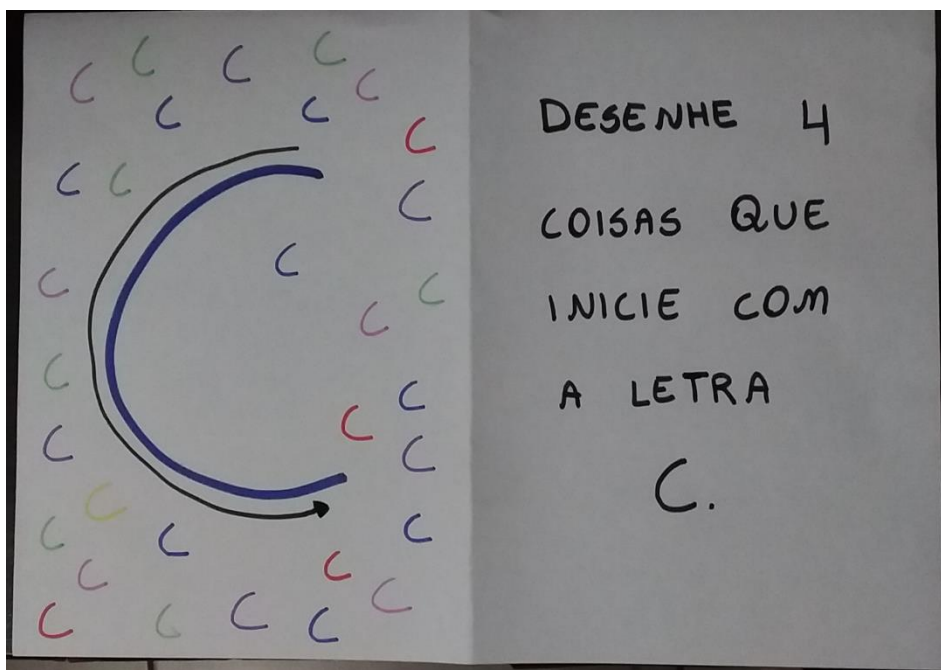 C C C C C
C C C
C C C
C
C
C C
C
C C
C
C C
C
C C C
C C C
C C C C
DESENHE 4
COISAS QUE
INICIE COM
A LETRA
C.